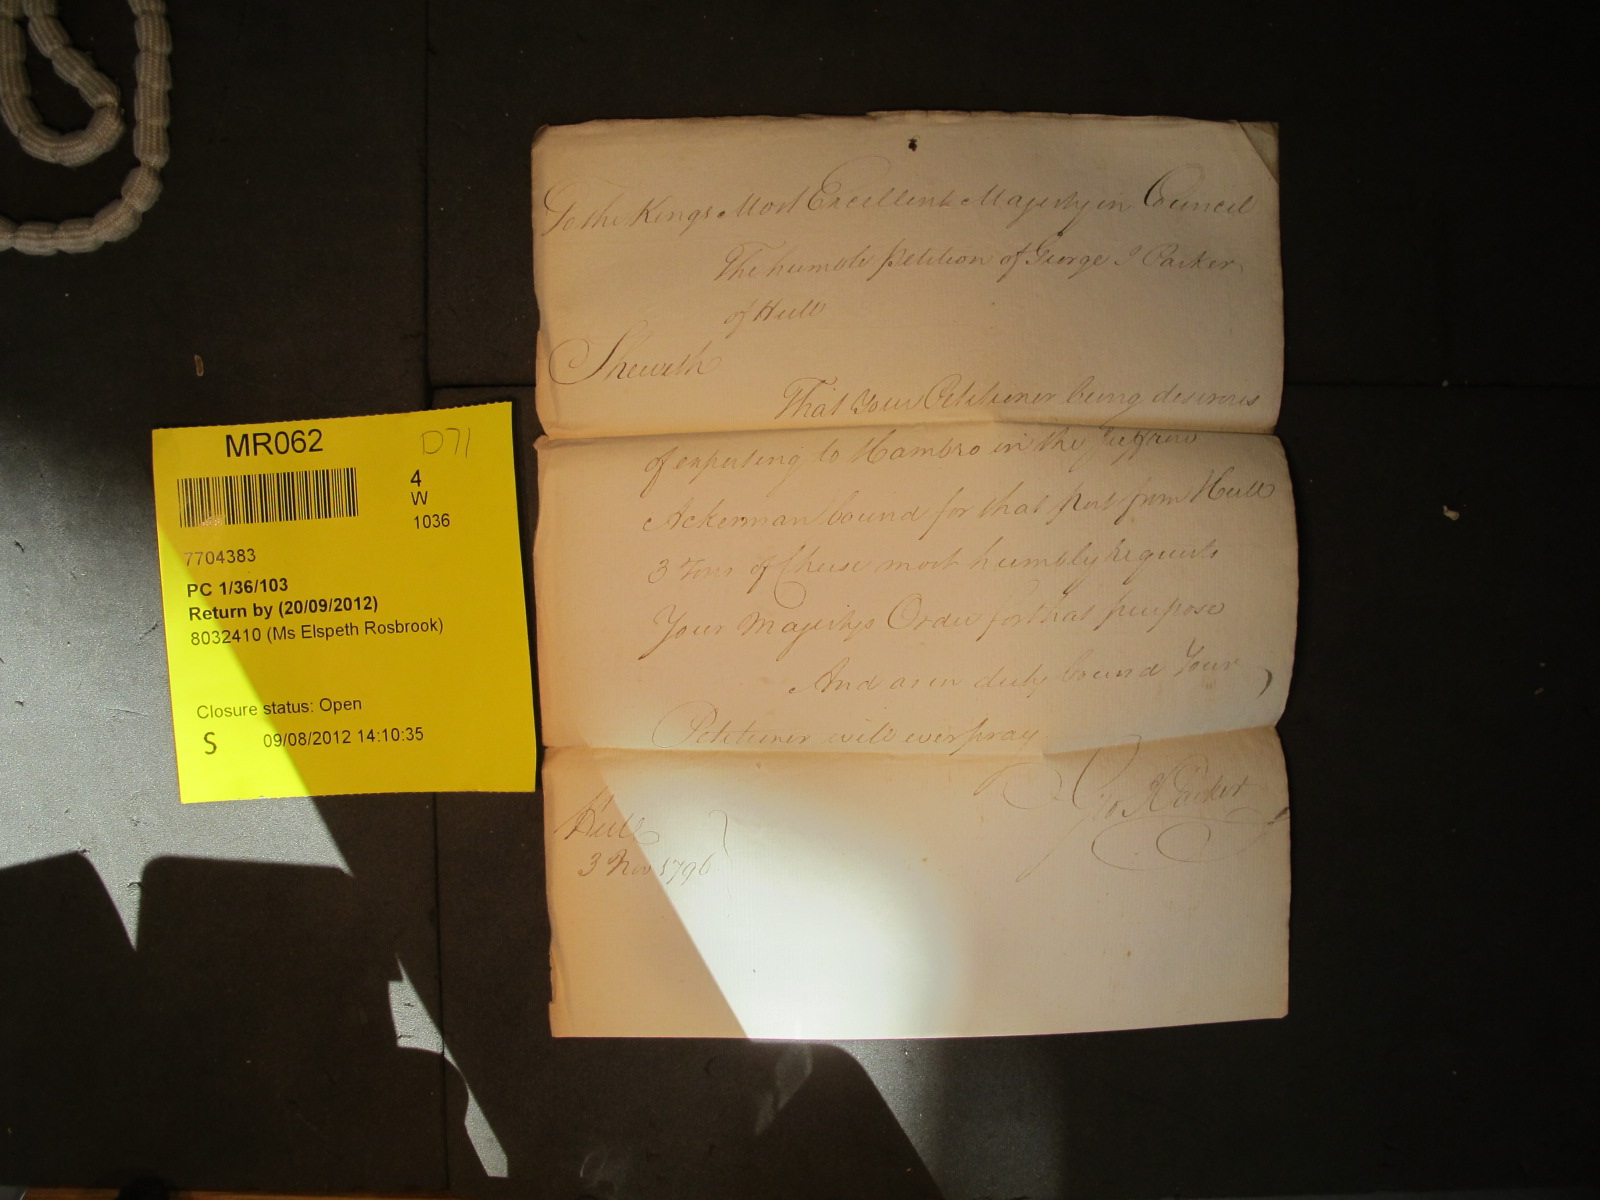 To the Kings Most Excellent Majesty in Council
The humble petition of George I Parker
of Hull
Sheweth
That Your Petitioner being desirous
of exporting to Hambro in the
Ackerman bound for that port from Hull
3 Tons of Cheese most humbly Requests
Your Majestys Order for that purpose
And as in duty bound Your
Petitioner will ever pray
Geo I Parker
Hull
3 Nov 1796
MR062
D71
4
W
1036
7704383
PC 1/36/103
Return by (20/09/2012)
8032410 (Ms Elspeth Rosbrook)
Closure status: Open
S 09/08/2012 14:10:35